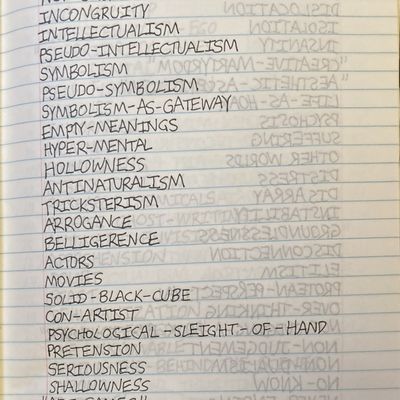 INCONGRUITY
INTELLECTUALISM
PSEUDO-INTELLECTUALISM
SYMBOLISM
PSEUDO-SYMBOLISM
SYMBOLISM-AS-GATEWAY
EMPTY-MEANINGS
HYPER-MENTAL
HOLLOWNESS
ANTINATURALISM
TRICKSTERISM
ARROGANCE
BELLIGERENCE
ACTORS
MOVIES
SOLID-BLACK-CUBE
CON-ARTIST
PSYCHOLOGICAL-SLEIGHT-OF-HAND
PRETENSION
SERIOUSNESS
SHALLOWNESS